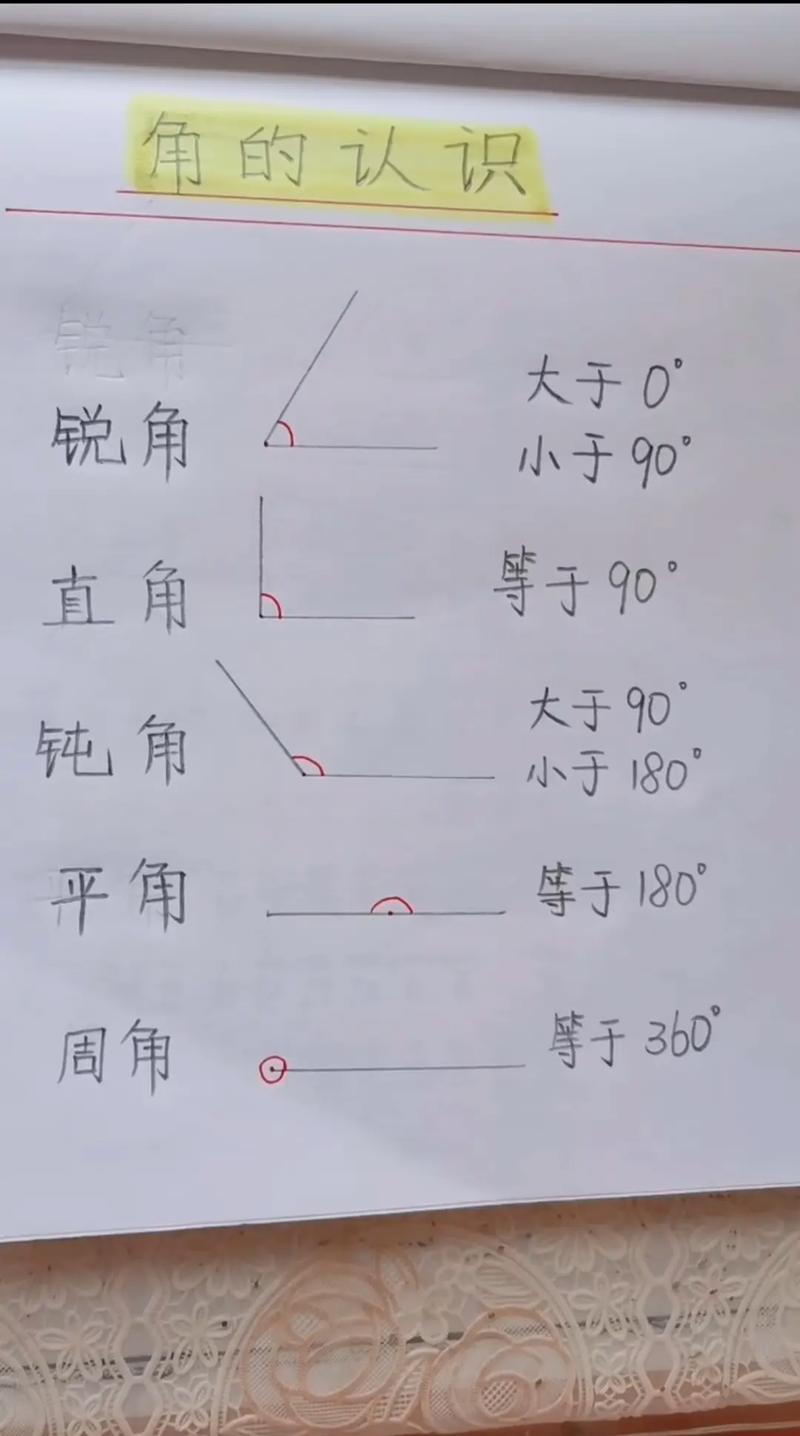 角的认识
锐角
大于0°
锐角
小于90°
直角
等于90°
钝角
大于90°
小于180°
平角
等于180°
周角
等于360°